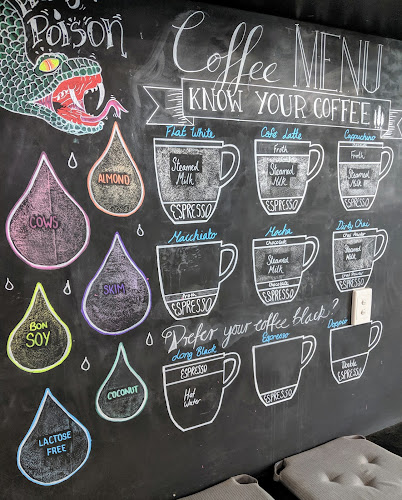 Poison
Coffee MENU
KNOW YOUR COFFEE
ALMOND
COWS
SKIM
BON
SOY
COCONUT
LACTOSE
FREE
Flat White
Steamed
Milk
ESPRESSO
Cafe Latte
Froth
Steamed
Milk
ESPRESSO
Cappuchino
Froth
Steamed
Milk
ESPRESSO
Macchiato
Froth
ESPRESSO
Mocha
Chocolate
Steamed
Milk
Chocolate
ESPRESSO
Dirty Chai
Chai Powder
Steamed
Milk
Chai Powder
ESPRESSO
Prefer your coffee black?
Long Black
ESPRESSO
Hot
Water
Espresso
ESPRESSO
Doppio
Double
ESPRESSO